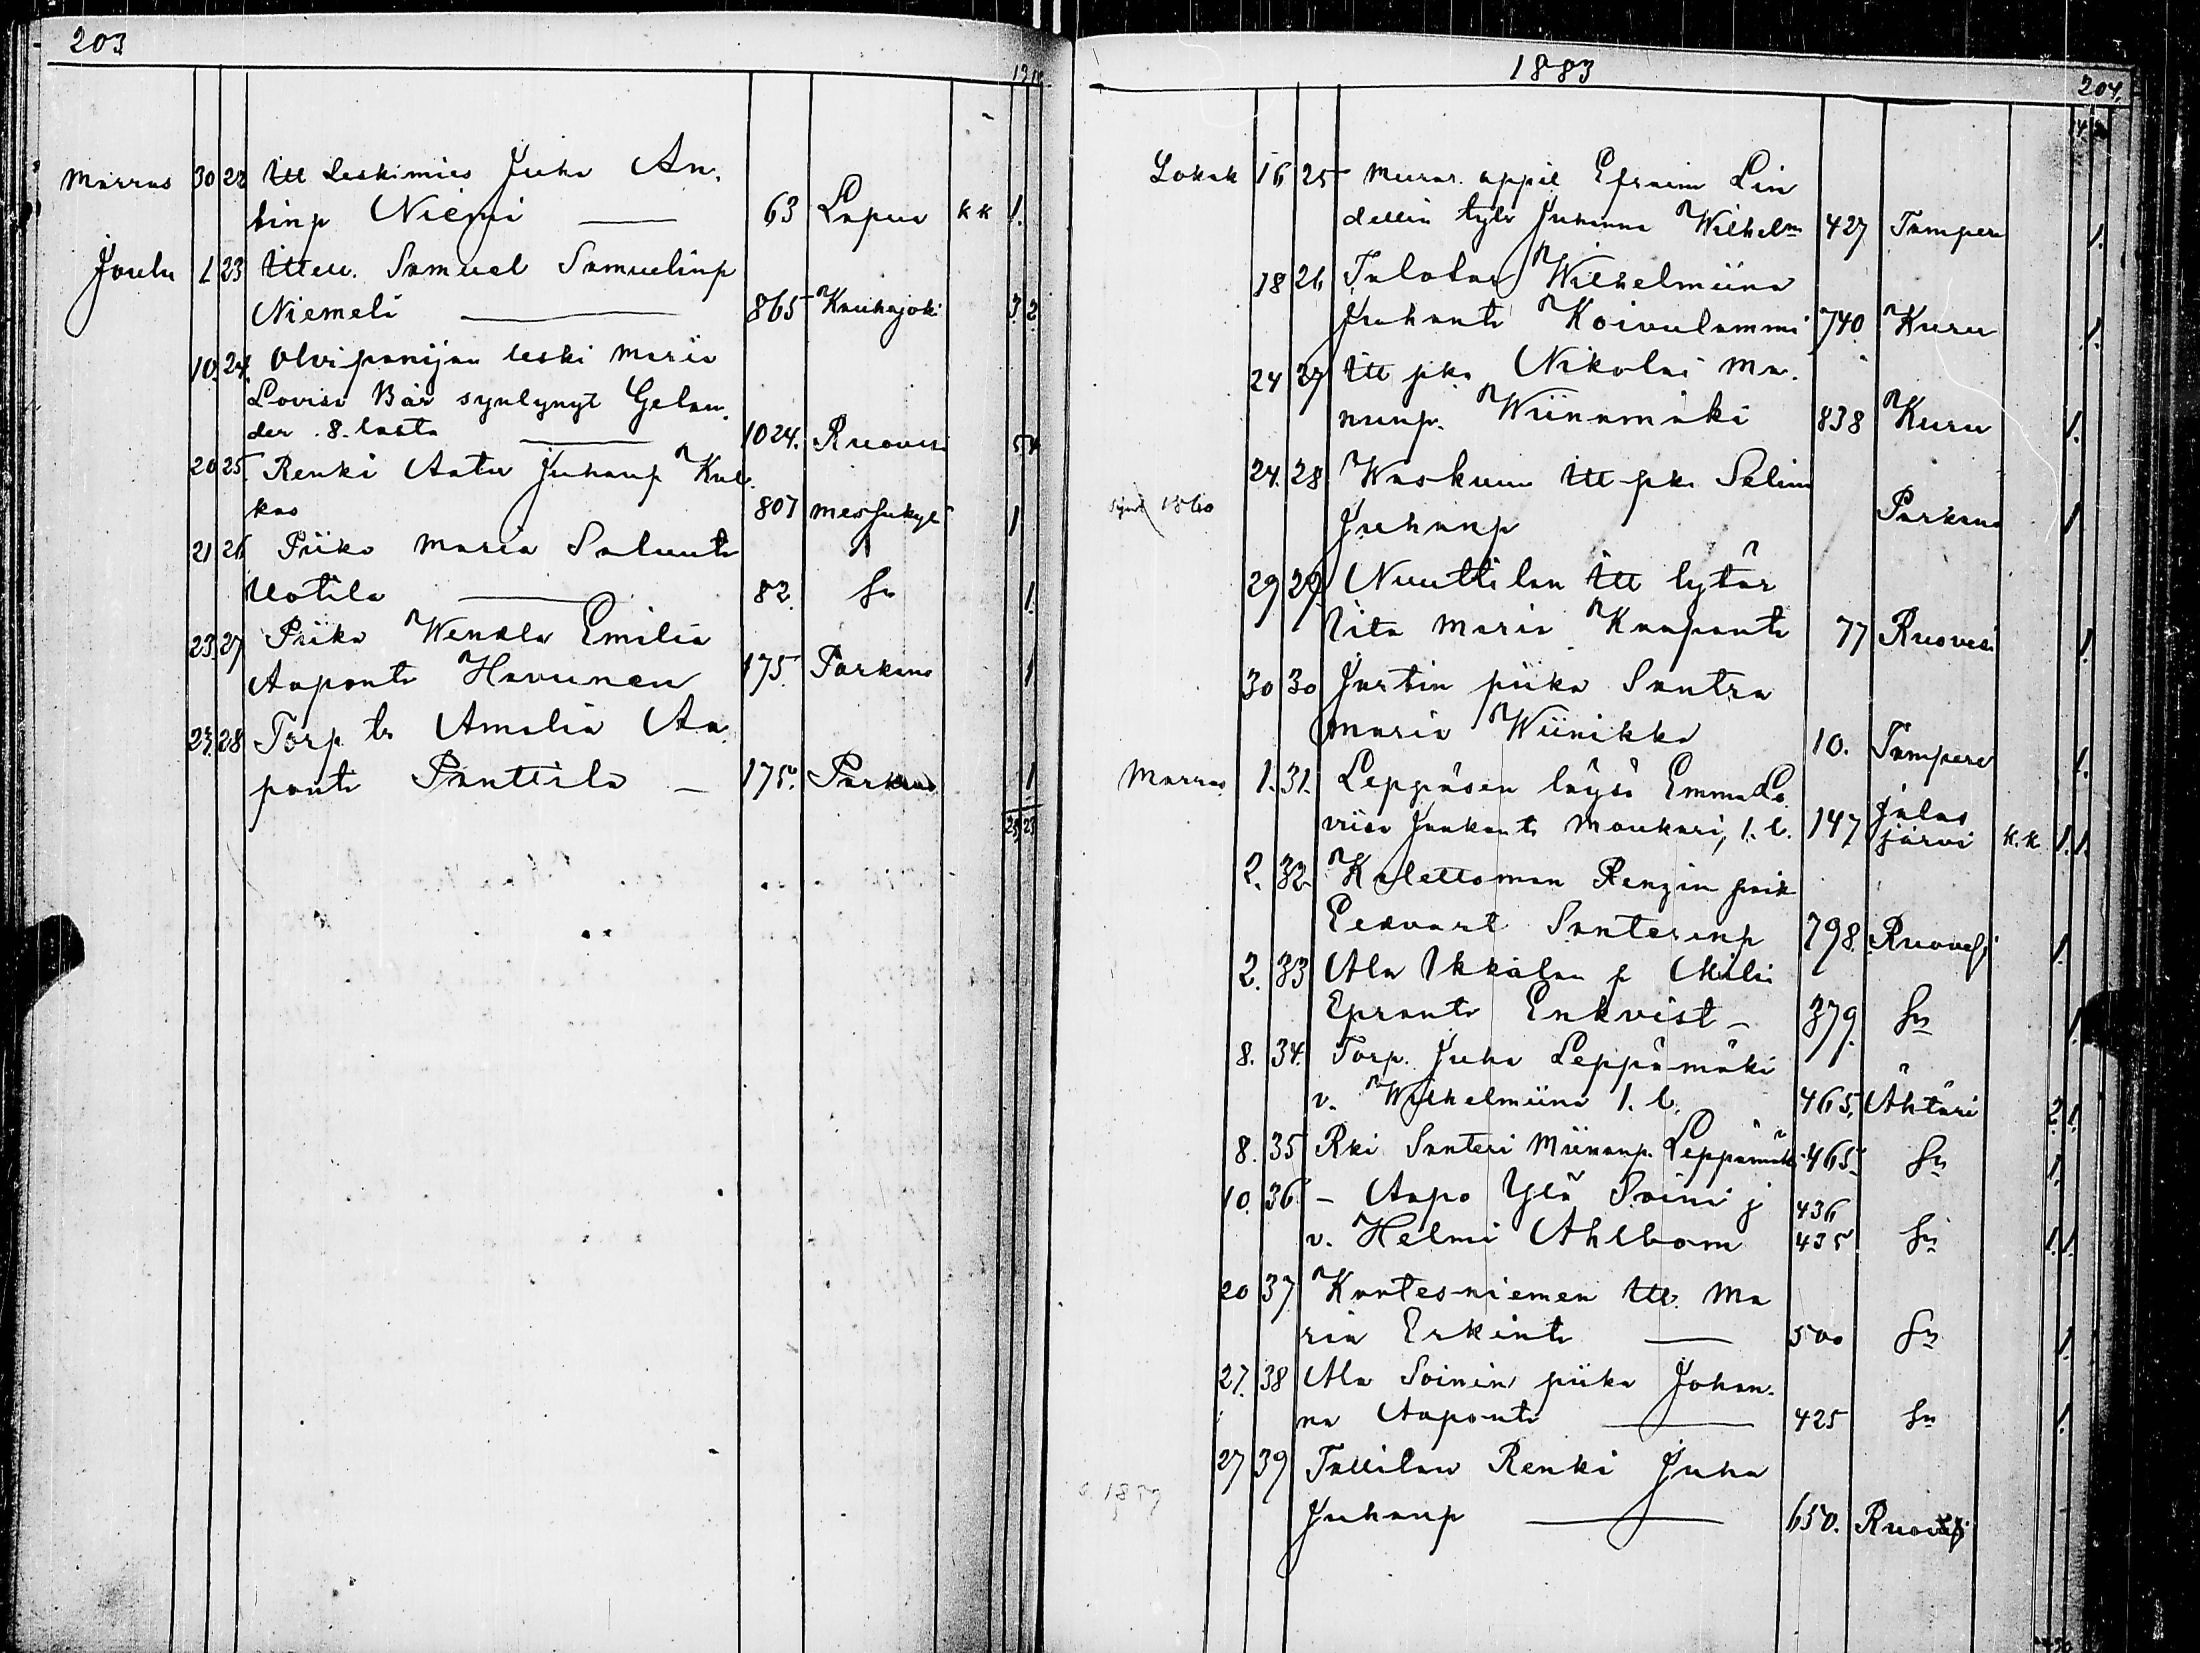 203
Marras 30 22 Itt Leskimies Juha An.
tinp Niemi — 63 Lapua kk 1.
Joulu 1 23 Itten. Samuel Samuelinp
Niemeli — 865 Kauhajoki 3. 2.
10. 24. Olvipanijan leski Maria
Lovisa Bär synlynyt Gelan.
der . 8. lasta — 1024. Ruovesi 5 4
20 25. Renki Aatu Juhanp Kul.
kas 807 Messukylä 1
21 26 Piika Maria Salunt.
Uotila — 82. Sn 1.
23. 27 Piika Wendla Emilia
Aapont. Havunen 175. Parkano 1
23. 28 Torp. tr Amalia Aa.
pont. Panttila — 175. Parkano 1
23 23
1883
204.
Lokak 16 25 Murar. oppil Efraim Lin
dellin tytr Juhanna Wilhelm 427 Tampere 1.
18 26 Talolas Wilhelmiina
Juhant. Koivulammi 740. Kuru 1.
24 27 Itt pka Nikolai Ma.
nunp. Wiinamäki 838 Kuru 1.
24. 28 Waskuun Itt pka Selim
synt 1860 Juhanp Parkano 1
29 29. Nuuttilan Itt tytär
Iita Maria Kaapont. 77 Ruovesi 1.
30 30 Jastin piika Santra
Maria Wiinikka 10. Tampere 1.
Marras 1. 31. Leppäsen läysä Emma Lo
viisa Jaakont. Moukari, 1. l. 147 Jalas
järvi k.k. 1. 1.
2. 32 Kalettoman Rengin poik
Eedvart Santerinp 798. Ruovesi 1.
2. 33 Ala Ikkälan p Miili
Epront. Enkvist – 379. Sn 1.
8. 34. Torp. Juha Leppämäki
v. Wilhelmiina 1. l. 465. Ähtäri 2. 1.
8. 35 Rki Santeri Miinanp. Leppämäki 465 Sn 1.
10. 36 – Aapo Ylä Soini j 436
v. Helmi Ahlbom 435 Sn 1. 1.
20 37 Kontesniemen Itt. Ma
ria Erkint. — 500 Sn 1.
27. 38 Ala Soinin piika Johan.
na Aapont. — 425 Sn 1.
27 39 Tallilan Renki Juha
s. 1859 Juhanp — 650. Ruovesi